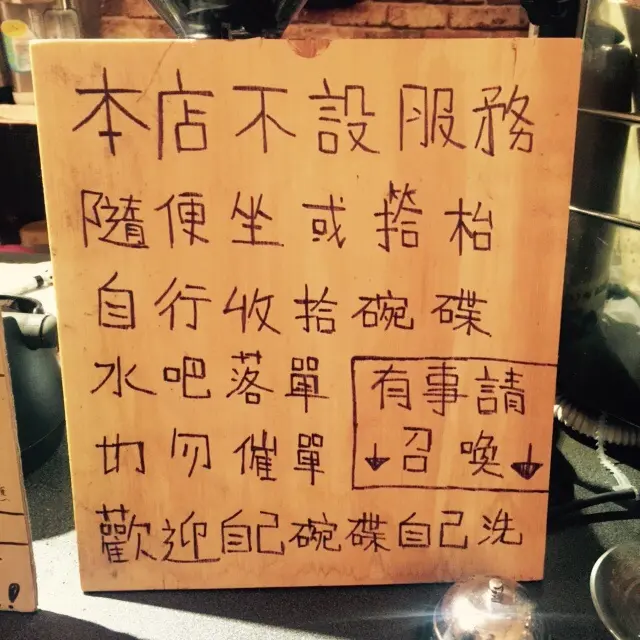 本店不設服務
隨便坐或搭枱
自行收拾碗碟
水吧落單
切勿催單
有事請
召喚
歡迎自己碗碟自己洗